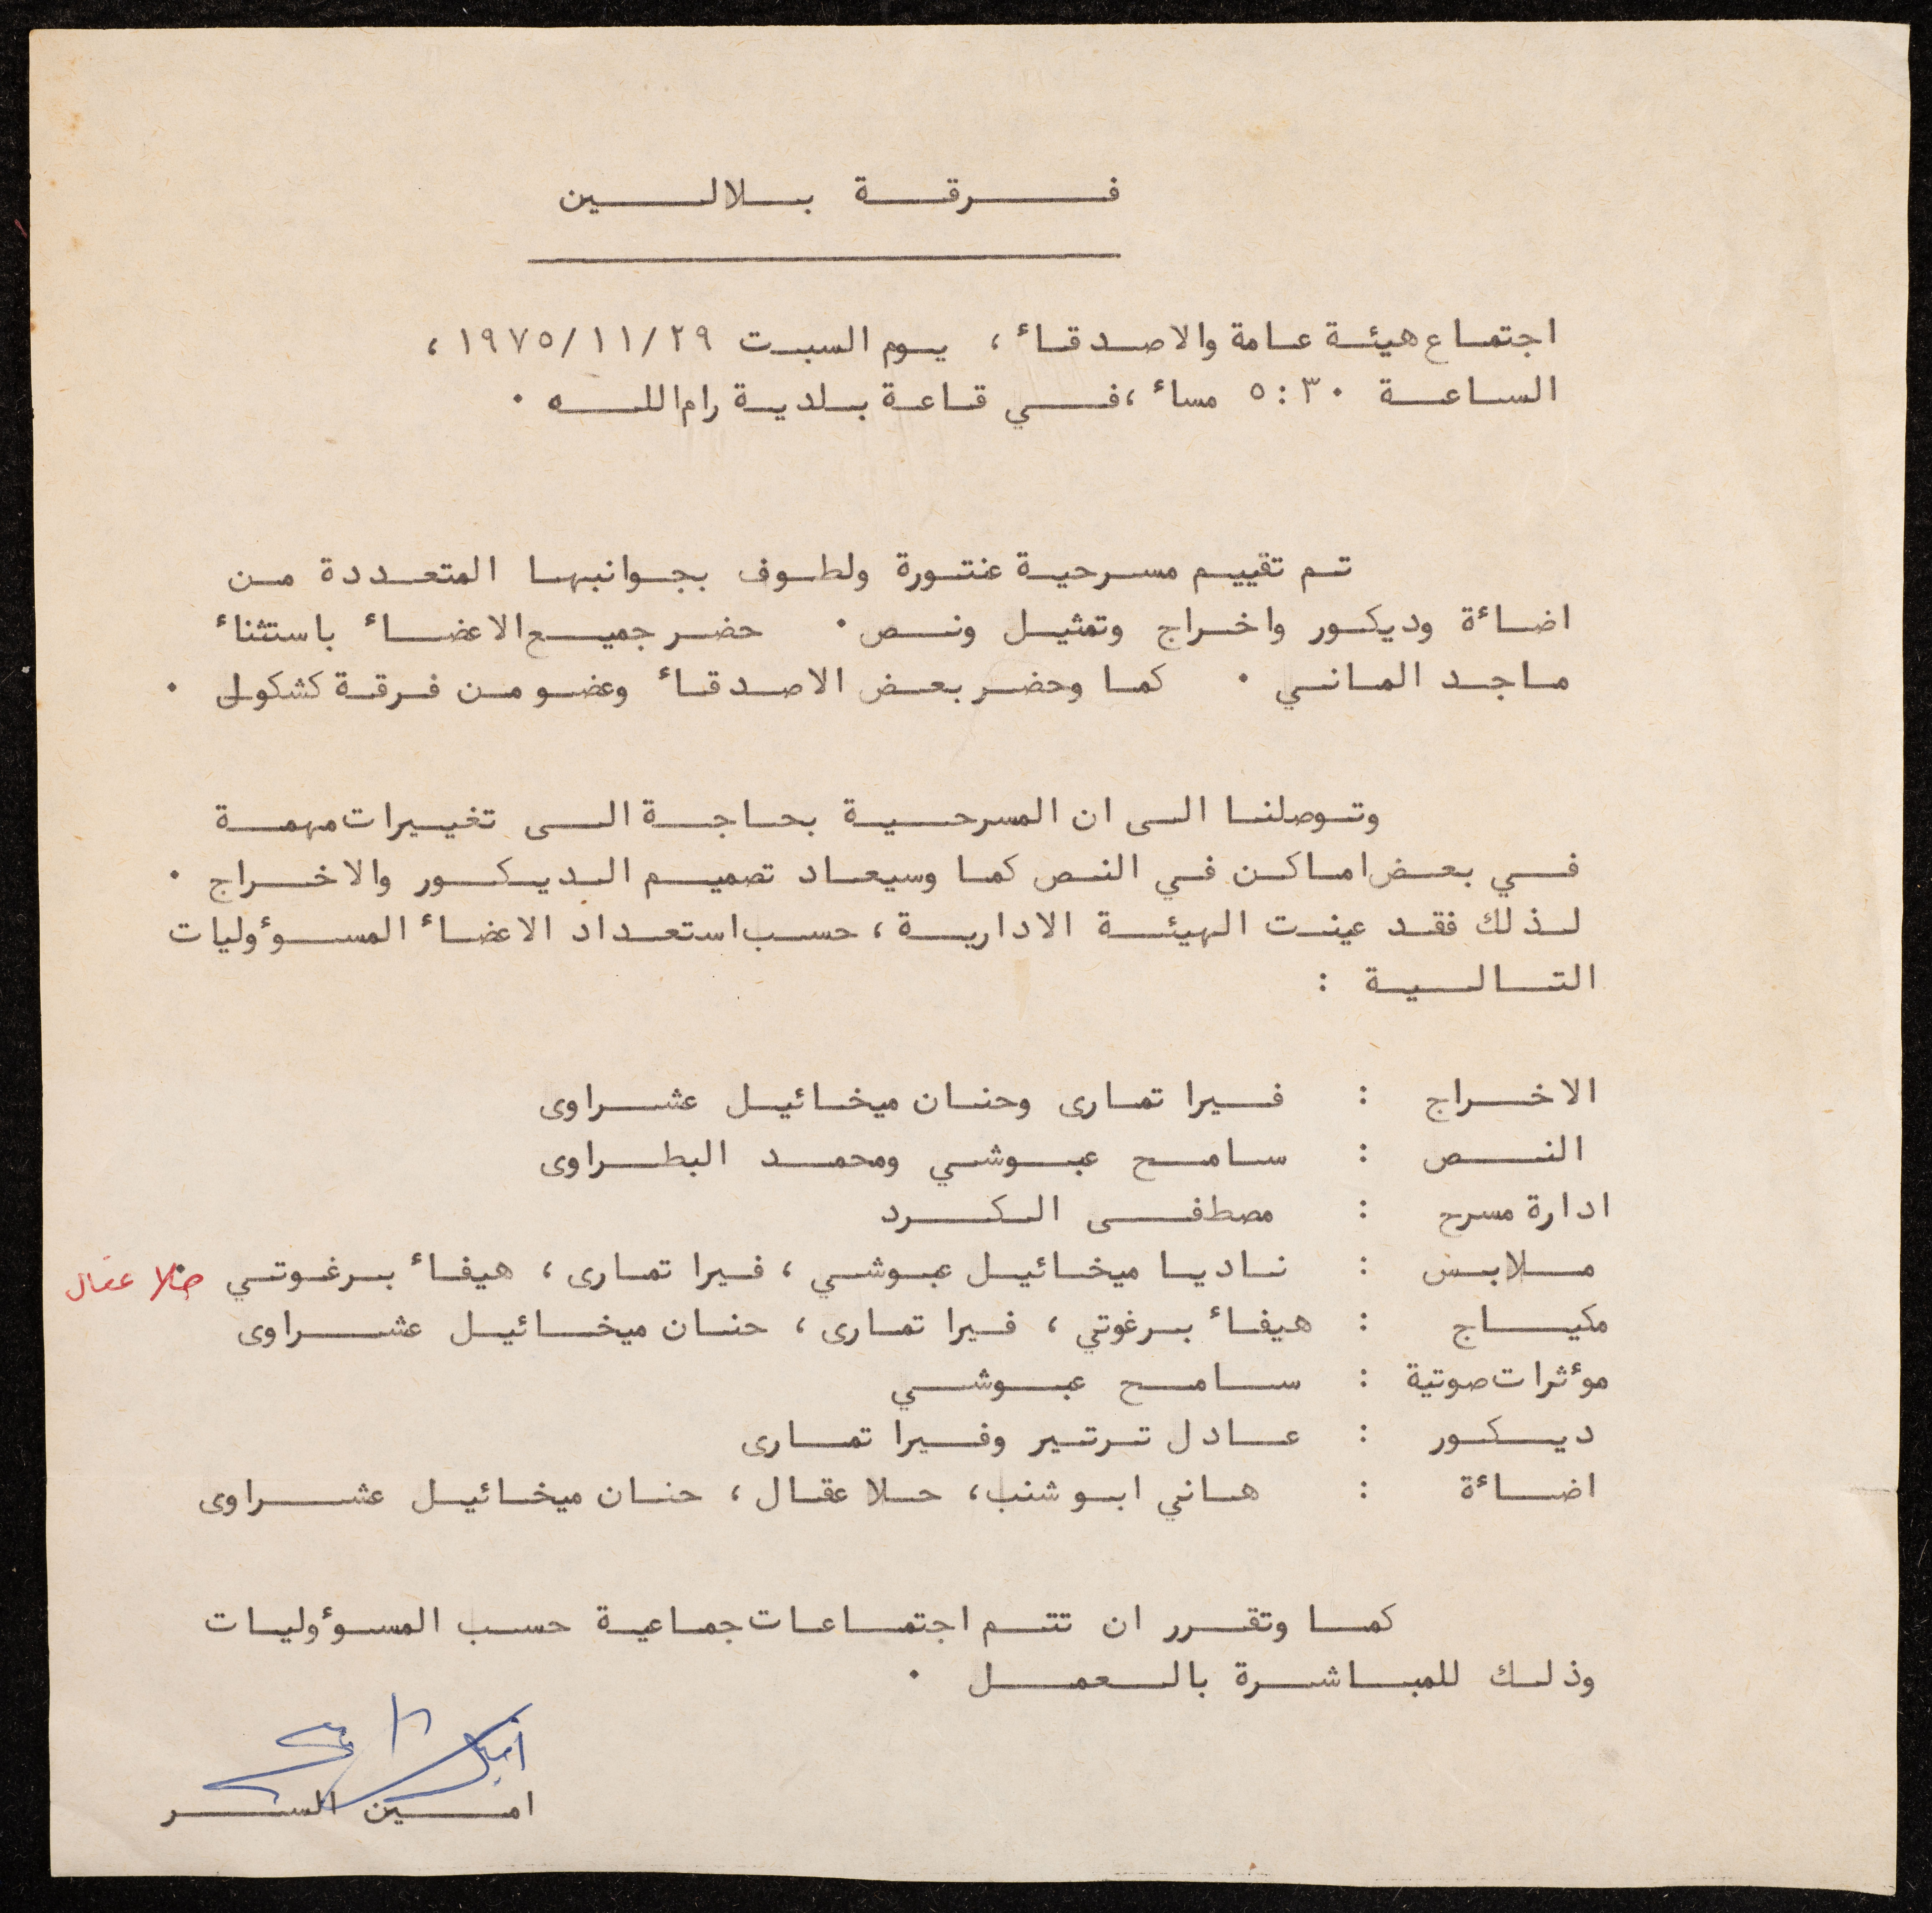 فرقة بلالين
اجتماع هيئة عامة والاصدقاء ، يوم السبت ٢٩/١١/١٩٧٥ ،
الساعة ٥:٣٠ مساء ، في قاعة بلدية رام الله .
تم تقييم مسرحية عنتورة ولطوف بجوانبها المتعددة من
اضاءة وديكور واخراج وتمثيل ونص . حضر جميع الاعضاء باستثناء
ماجد الماني . كما وحضر بعض الاصدقاء وعضو من فرقة كشكول .
وتوصلنا الى ان المسرحية بحاجة الى تغييرات مهمة
في بعض اماكن في النص كما وسيعاد تصميم الديكور والاخراج .
لذلك فقد عينت الهيئة الادارية ، حسب استعداد الاعضاء المسوؤوليات
التالية :
الاخراج : فيرا تمارى وحنان ميخائيل عشراوى
النص : سامح عبوشي ومحمد البطراوى
ادارة مسرح : مصطفى الكرد
ملابس : ناديا ميخائيل عبوشي ، فيرا تمارى ، هيفاء برغوتي حلا عقال
مكياج : هيفاء برغوتي ، فيرا تمارى ، حنان ميخائيل عشراوى
موءثرات صوتية : سامح عبوشي
ديكور : عادل ترتير وفيرا تمارى
اضاءة : هاني ابو شنب ، حلا عقال ، حنان ميخائيل عشراوى
كما وتقرر ان تتم اجتماعات جماعية حسب المسوؤوليات
وذلك للمباشرة بالعمل .
امين السر